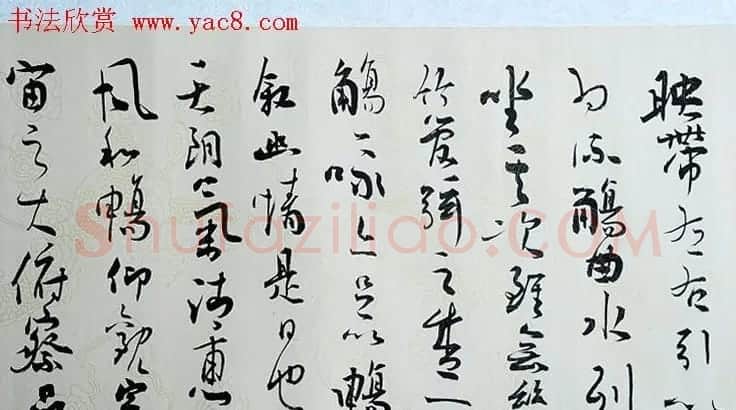 书法欣赏 www.yac8.com
映帶左右引
為流觴曲水列
坐其次雖無絲
竹管弦之盛一
觴一咏亦足以暢
敘幽情是日也
天朗氣清惠
風和暢仰觀宇
宙之大俯察品
Shufaziliao.com